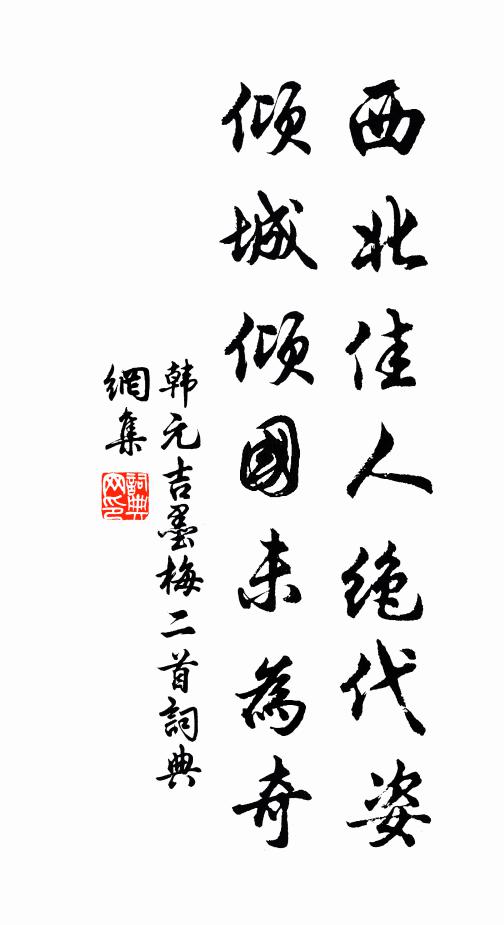 西北佳人绝代姿
倾城倾國未為奇
韩元吉墨梅二首詞典
網集
詞典
网印